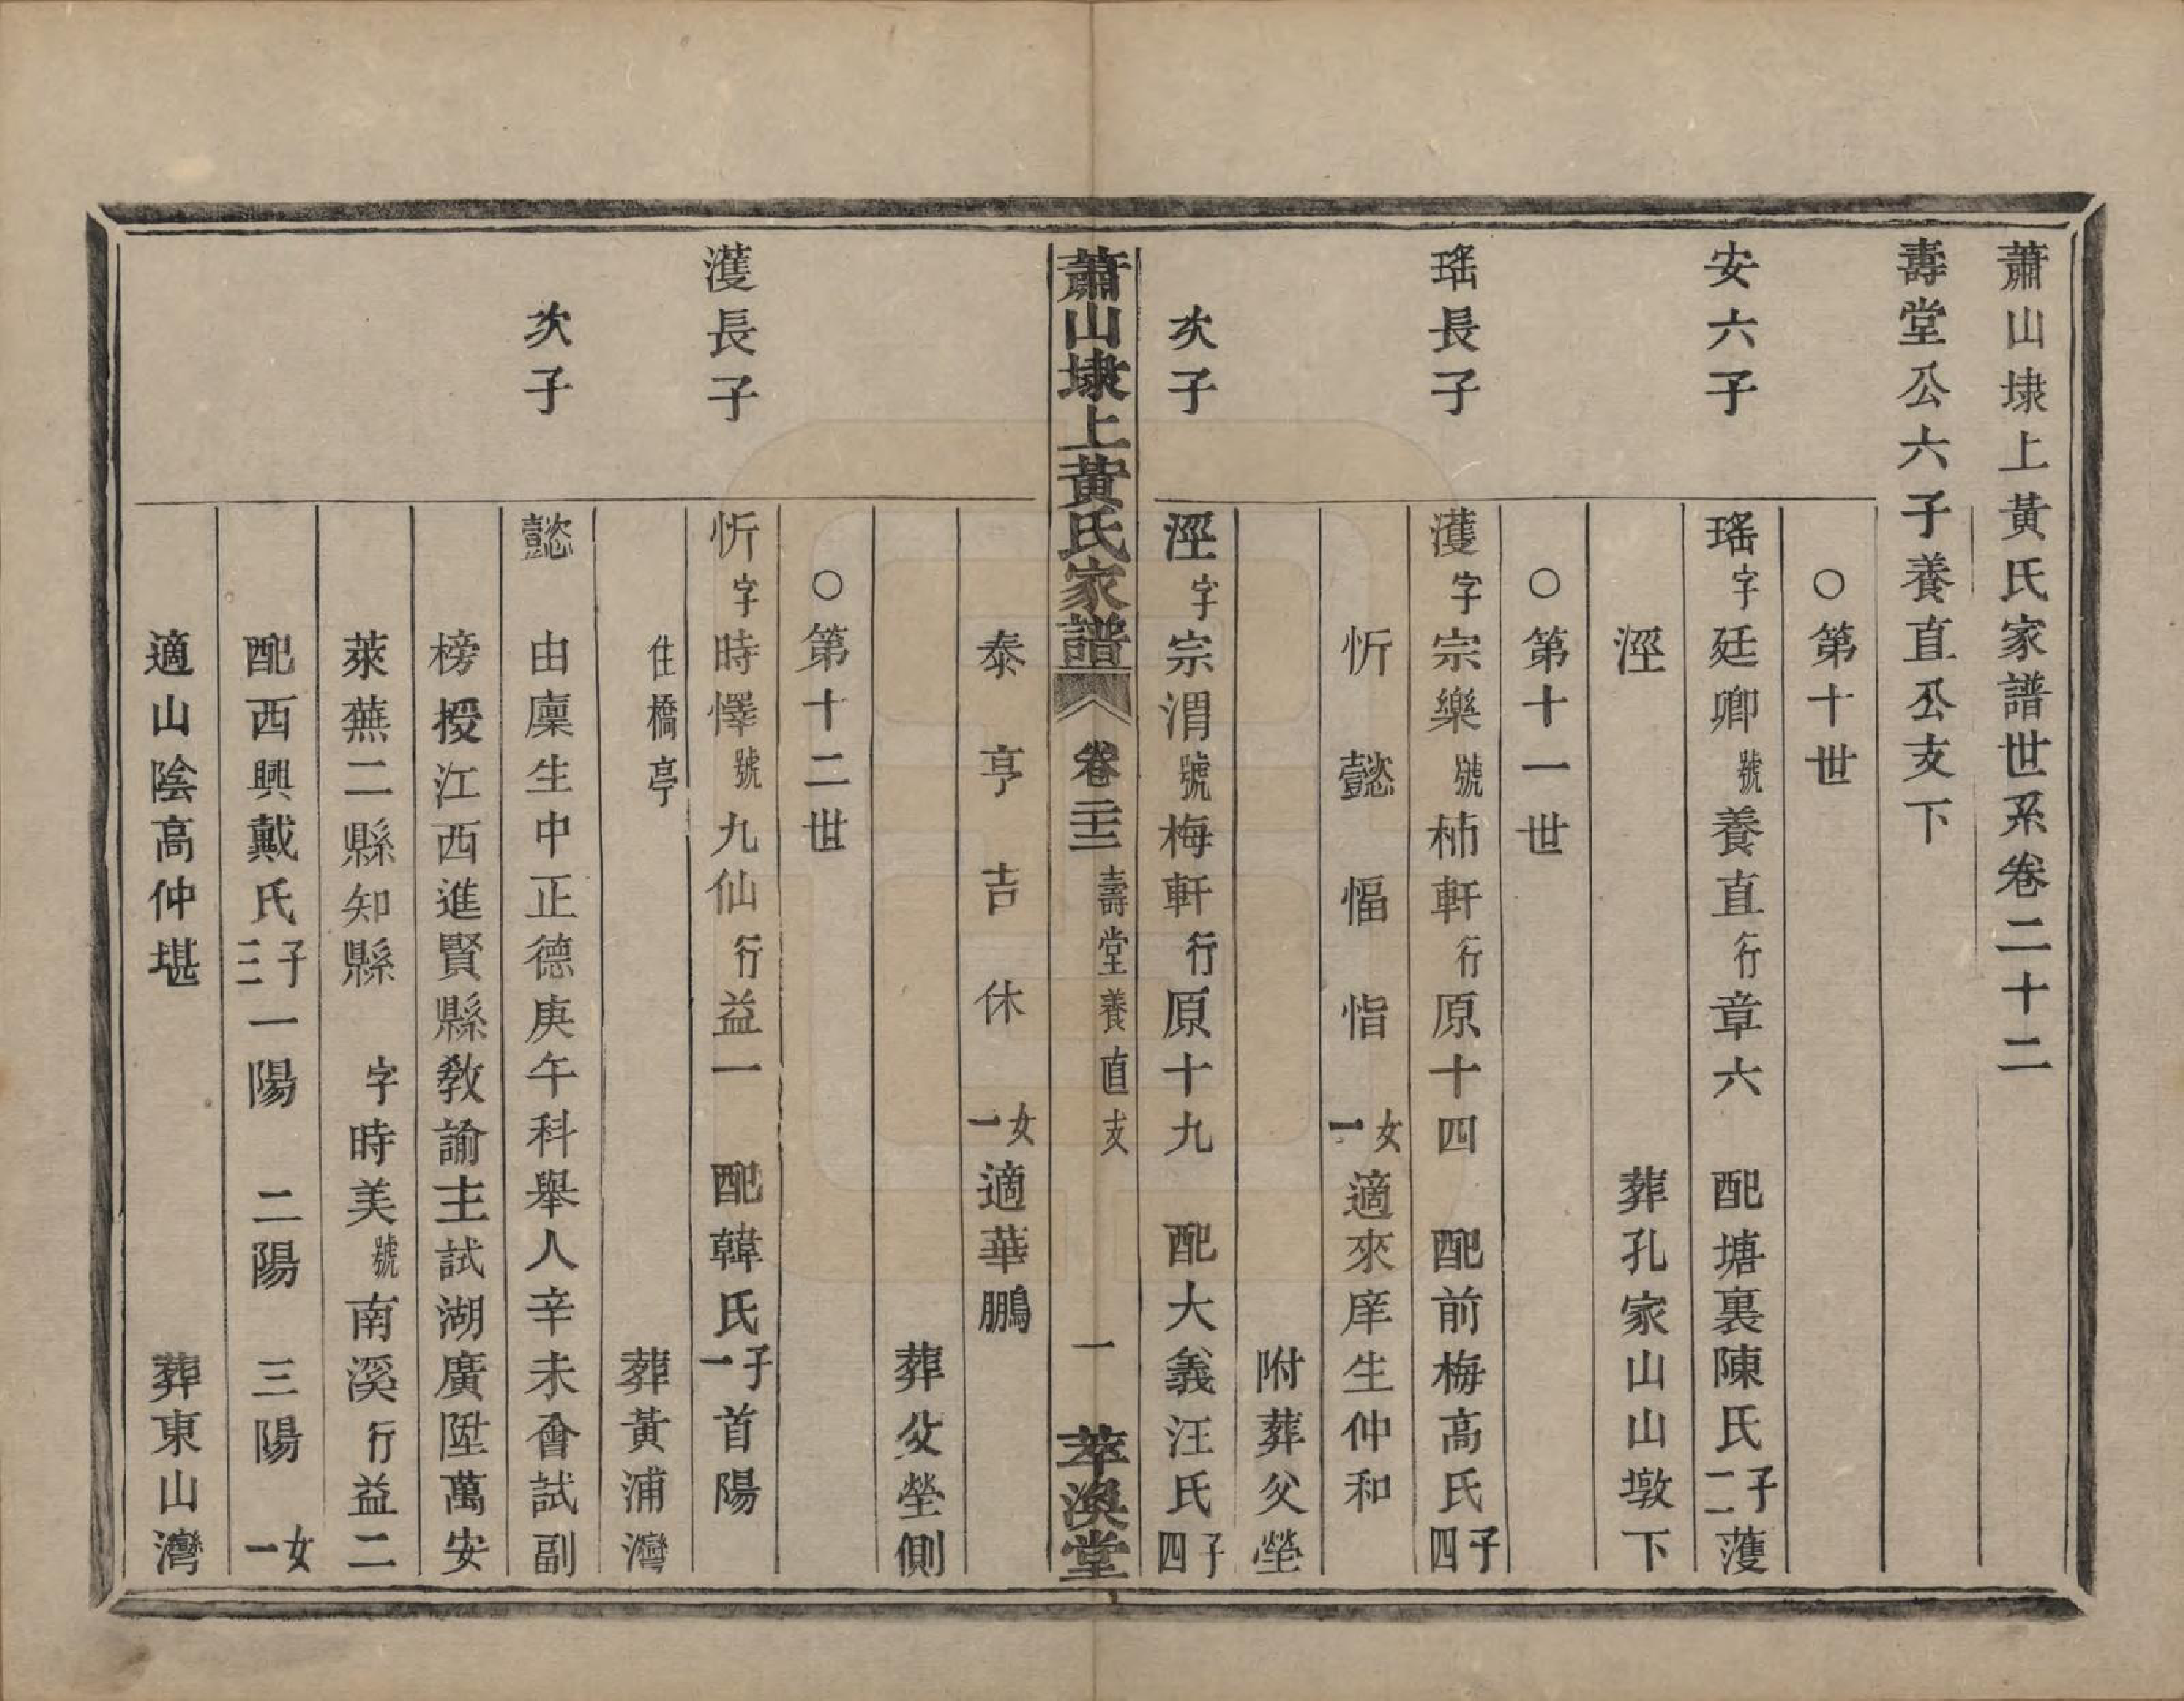 蕭山埭上黃氏家譜世系卷二十二
壽堂公六子養直公支下
○第十世
安六子 瑤字廷卿號養直行章六 配塘裏陳氏子二濩
涇 葬孔家山山墩下
○第十一世
瑤長子 濩字宗樂號柿軒行原十四 配前梅高氏子四
忻 懿 愊 恉 女一適來庠生仲和
附葬父塋
次子 涇字宗渭號梅軒行原十九 配大義汪氏子四
蕭山埭上黃氏家譜 卷二十二 壽堂養直支 一 萃渙堂
泰 亨 吉 休 女一適華鵬
葬父塋側
○第十二世
濩長子 忻字時懌號九仙行益一 配韓氏子一首陽
住橋亭 葬黃浦灣
次子 懿 由廩生中正德庚午科舉人辛未會試副
榜授江西進賢縣教諭主試湖廣陞萬安
萊蕪二縣知縣 字時美號南溪行益二
配西興戴氏子三一陽 二陽 三陽 女一
適山陰高仲堪 葬東山灣